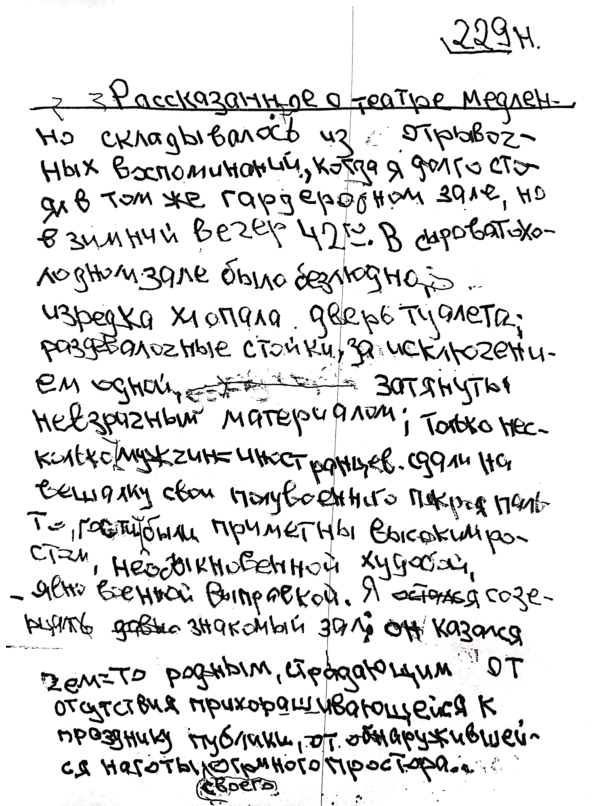 229н.
Рассказанное о театре медлен-
но складывалось из отрывоч-
ных воспоминаний, когда я долго сто-
ял в том же гардеробном зале, но
в зимний вечер 42го. В сыровато хо-
лодном зале было безлюдно,
изредка хлопала дверь туалета;
раздевалочные стойки, за исключени-
ем одной, затянуты
невзрачным материалом; только нес-
колько мужчин=иностранцев сдали на
вешалку свои полувоенного покроя паль-
то, гости были приметны высоким ро-
стом, необыкновенной худобой,
явно военной выправкой. Я остался созе-
рцать давно знакомый зал; он казался
чем=то родным, страдающим от
отсутствия прихорашивающейся к
празднику публики, от обнаружившей-
ся наготы огромного простора...
своего